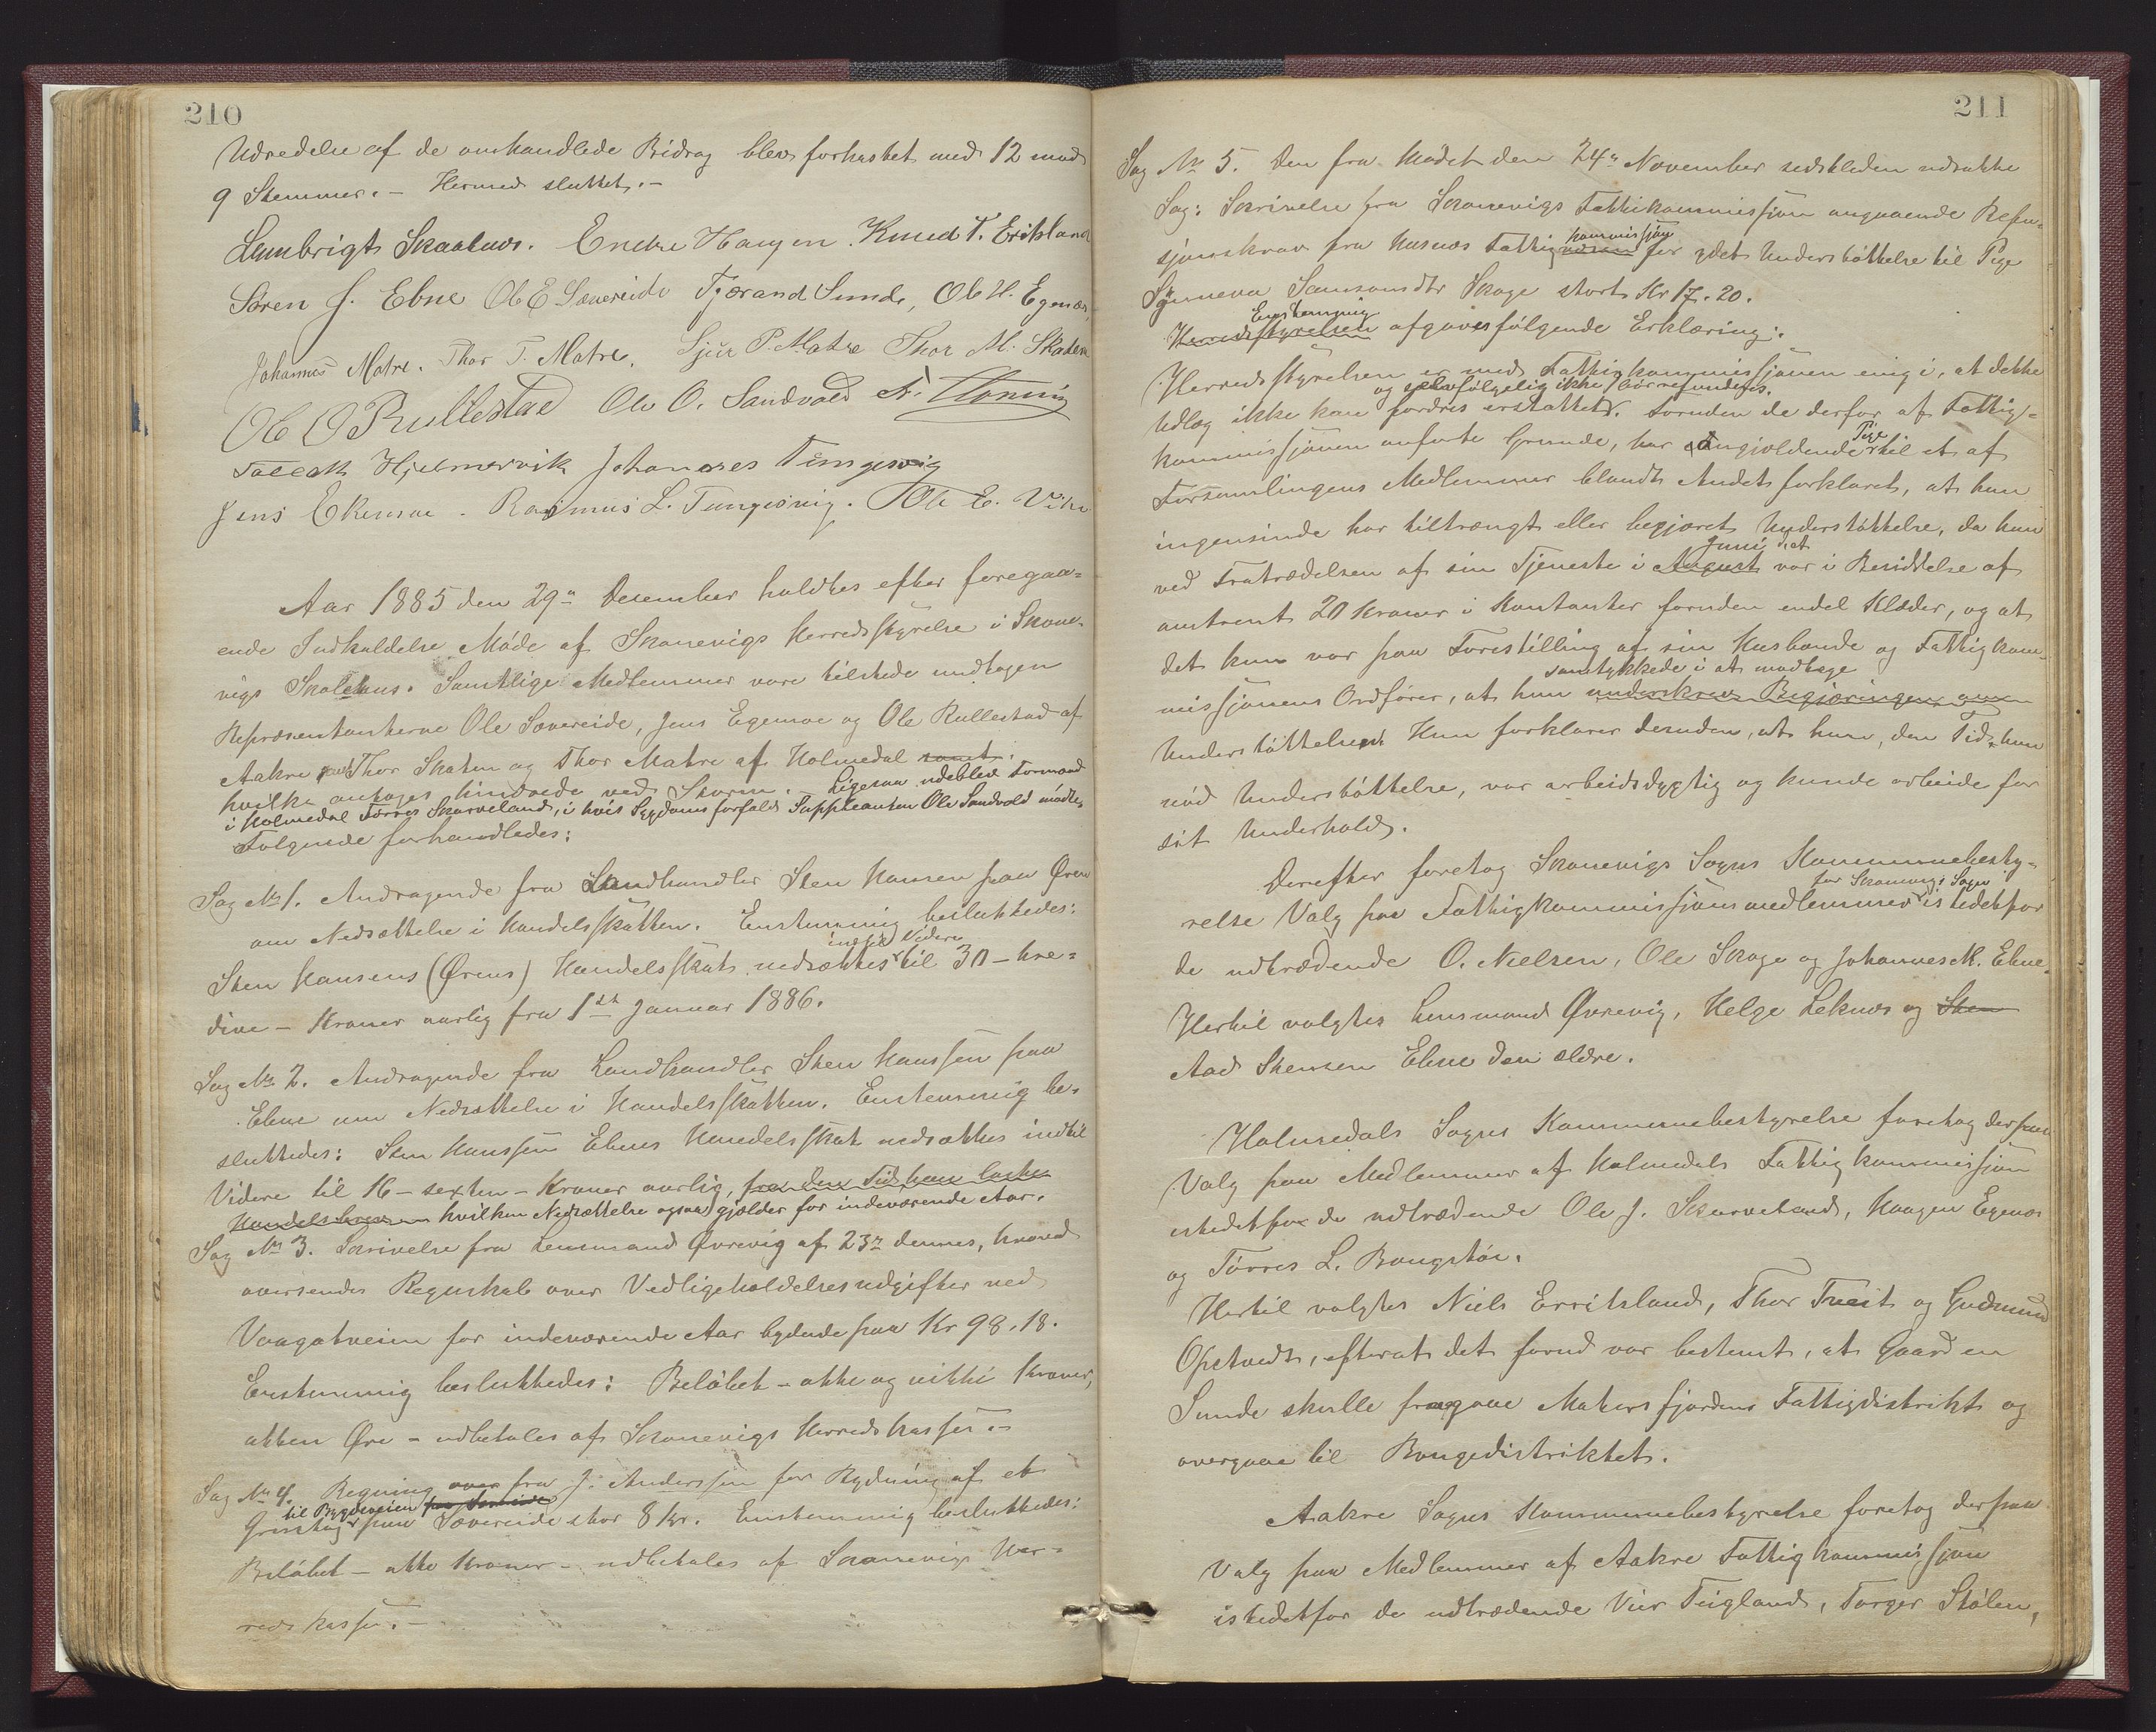 210
Udredelse af de omhandlede Bidrag blev forkastet med 12 mod
9 Stemmer. – Hermed sluttet. –
Lambrigt Skaalnes. Endre Haugen Knud T. Eriksland
Søren J. Ebne Ole E Sævereide Tjerand Sunde, Ole H. Egenæs,
Johannes Matre. Thor T. Matre, Sjur P. Matre Thor M. Skaten
Ole O Rullestad Ole O. Sandvold
Hjelmervik Johannes Tungesvig
Jens Ekemoe. Rasmus L. Tungesvig. Ole E. Vihe
Aar 1885 den 29de Desember holdtes efter foregaa-
ende Indkaldelse Møde af Skonevigs Herredsstyrelse i Skone-
vigs Skolehus. Samtlige Medlemmer vare tilstede undtagen
Repræsentanterne Ole Sævereide, Jens Egemoe og Ole Rullestad af
Aakre samt Thor Skaten og Thor Matre af Holmedal samt.
hvilke antoges hindrede ved Storm. – Ligesaa udeblev Formand
i Holmedal Tørres Skarveland, i hvis Sygdomsforfald Suppleanten Ole Sandvold mødte.
Følgende forhandledes:
Sag No 1. Andragende fra Landhandler Sten Hansen paa Øren
om Nedsættelse i Handelsskatten. Enstemmig besluttedes:
indtil Videre
Sten Hansens (Ørens) Handelsskat nedsættes til 30 – tre-
dive – Kroner aarlig fra 1ste Januar 1886.
Sag No 2. Andragende fra Landhandler Sten Hanssen paa
Ebne om Nedsættelse i Handelsskatten. Enstemmig be-
sluttedes: Sten Hanssen Ebnes Handelsskat nedsættes indtil
Videre til 16 – sexten – Kroner aarlig, fra den Tid han løste
Handelsbrev hvilken Nedsættelse ogsaa gjælder for indeværende Aar.
Sag No 3. Skrivelse fra Lensmand Øvrevig af 23de dennes, hvorved
oversendes Regnskab over Vedligeholdelsesudgifter ved
Vaagatveien for indeværende Aar lydende paa Kr 98.18.
Enstemmig besluttedes: Beløbet – otte og nitti Kroner,
atten Øre – udbetales af Skonevigs Herredskasse. –
Sag No 4. Regning over fra J. Anderssen for Rydning af et
til Bygdeveien paa Sævereide
Grustag paa Sævereide stor 8 Kr. Enstemmig besluttedes:
Beløbet – otte Kroner – udbetales af Skonevigs Her-
redskasse. –
211
Sag No 5. Den fra Mødet den 24de November sidstleden udsatte
Sag: Skrivelse fra Skonevigs Fattikommissjon angaaende Refu-
kommissjon
sjonskrav fra Husnæs Fattigvæsen for ydet Understøttelse til Pige
Synneva Samsonsdtr Skoge stort Kr 17.20.
Enstemmig
Herredsstyrelsen afgaves følgende Erklæring:
Herredsstyrelsen er med Fattigkommissjonen enig i, at dette
og selvfølgelig ikke bør refunderes.
Udlæg ikke kan fordres erstattet. Foruden de derfor af Fattig-
Pige
kommissjonen anførte Grunde, har Angjældende til et af
Forsamlingens Medlemmer blandt Andet forklaret, at hun
ingensinde har tiltrængt eller begjæret Understøttelse, da hun
Juni
ved Fratrædelsen af sin Tjeneste i August var i Besiddelse af
omtrent 20 Kroner i Kontanter foruden endel Klæder, og at
det kun var paa Forestilling af sin Husbonde og Fattigkom-
samtykkede i at modtage
missjonens Ordfører, at hun underskrev Begjæringen om
Understøttelsen. Hun forklarer desuden, at hun, den Tid, hun
nød Understøttelse, var arbeidsdygtig og kunde arbeide for
sit Underhold.
Derefter foretog Skonevigs Sogns Kommunebesty-
for Skonevigs Sogn
relse Valg paa Fattigkommissjonsmedlemmer istedetfor
de udtrædende O. Nielsen, Ole Skoge og Johannes M. Ebne.
Hertil valgtes Lensmand Øvrevig, Helge Leknes og Sten
Aad Stensen Ebne den ældre.
Holmedals Sogns Kommunebestyrelse foretog derpaa
Valg paa Medlemmer af Holmedals Fattigkommissjon
istedetfor de udtrædende Ole J. Skarveland, Haagen Egenæs
og Tørres L. Bongstøe.
Hertil valgtes Niels Erritsland, Thor Tveit og Gudmund
Opstvedt, efterat det forud var bestemt, at Gaarden
Sunde skulle fragaae Matersfjordens Fattigdistrikt og
overgaae til Bongedistriktet.
Aakre Sogns Kommunebestyrelse foretog derpaa
Valg paa Medlemmer af Aakre Fattigkommissjon
istedetfor de udtrædende Vier Teigland, Torger Stølen,